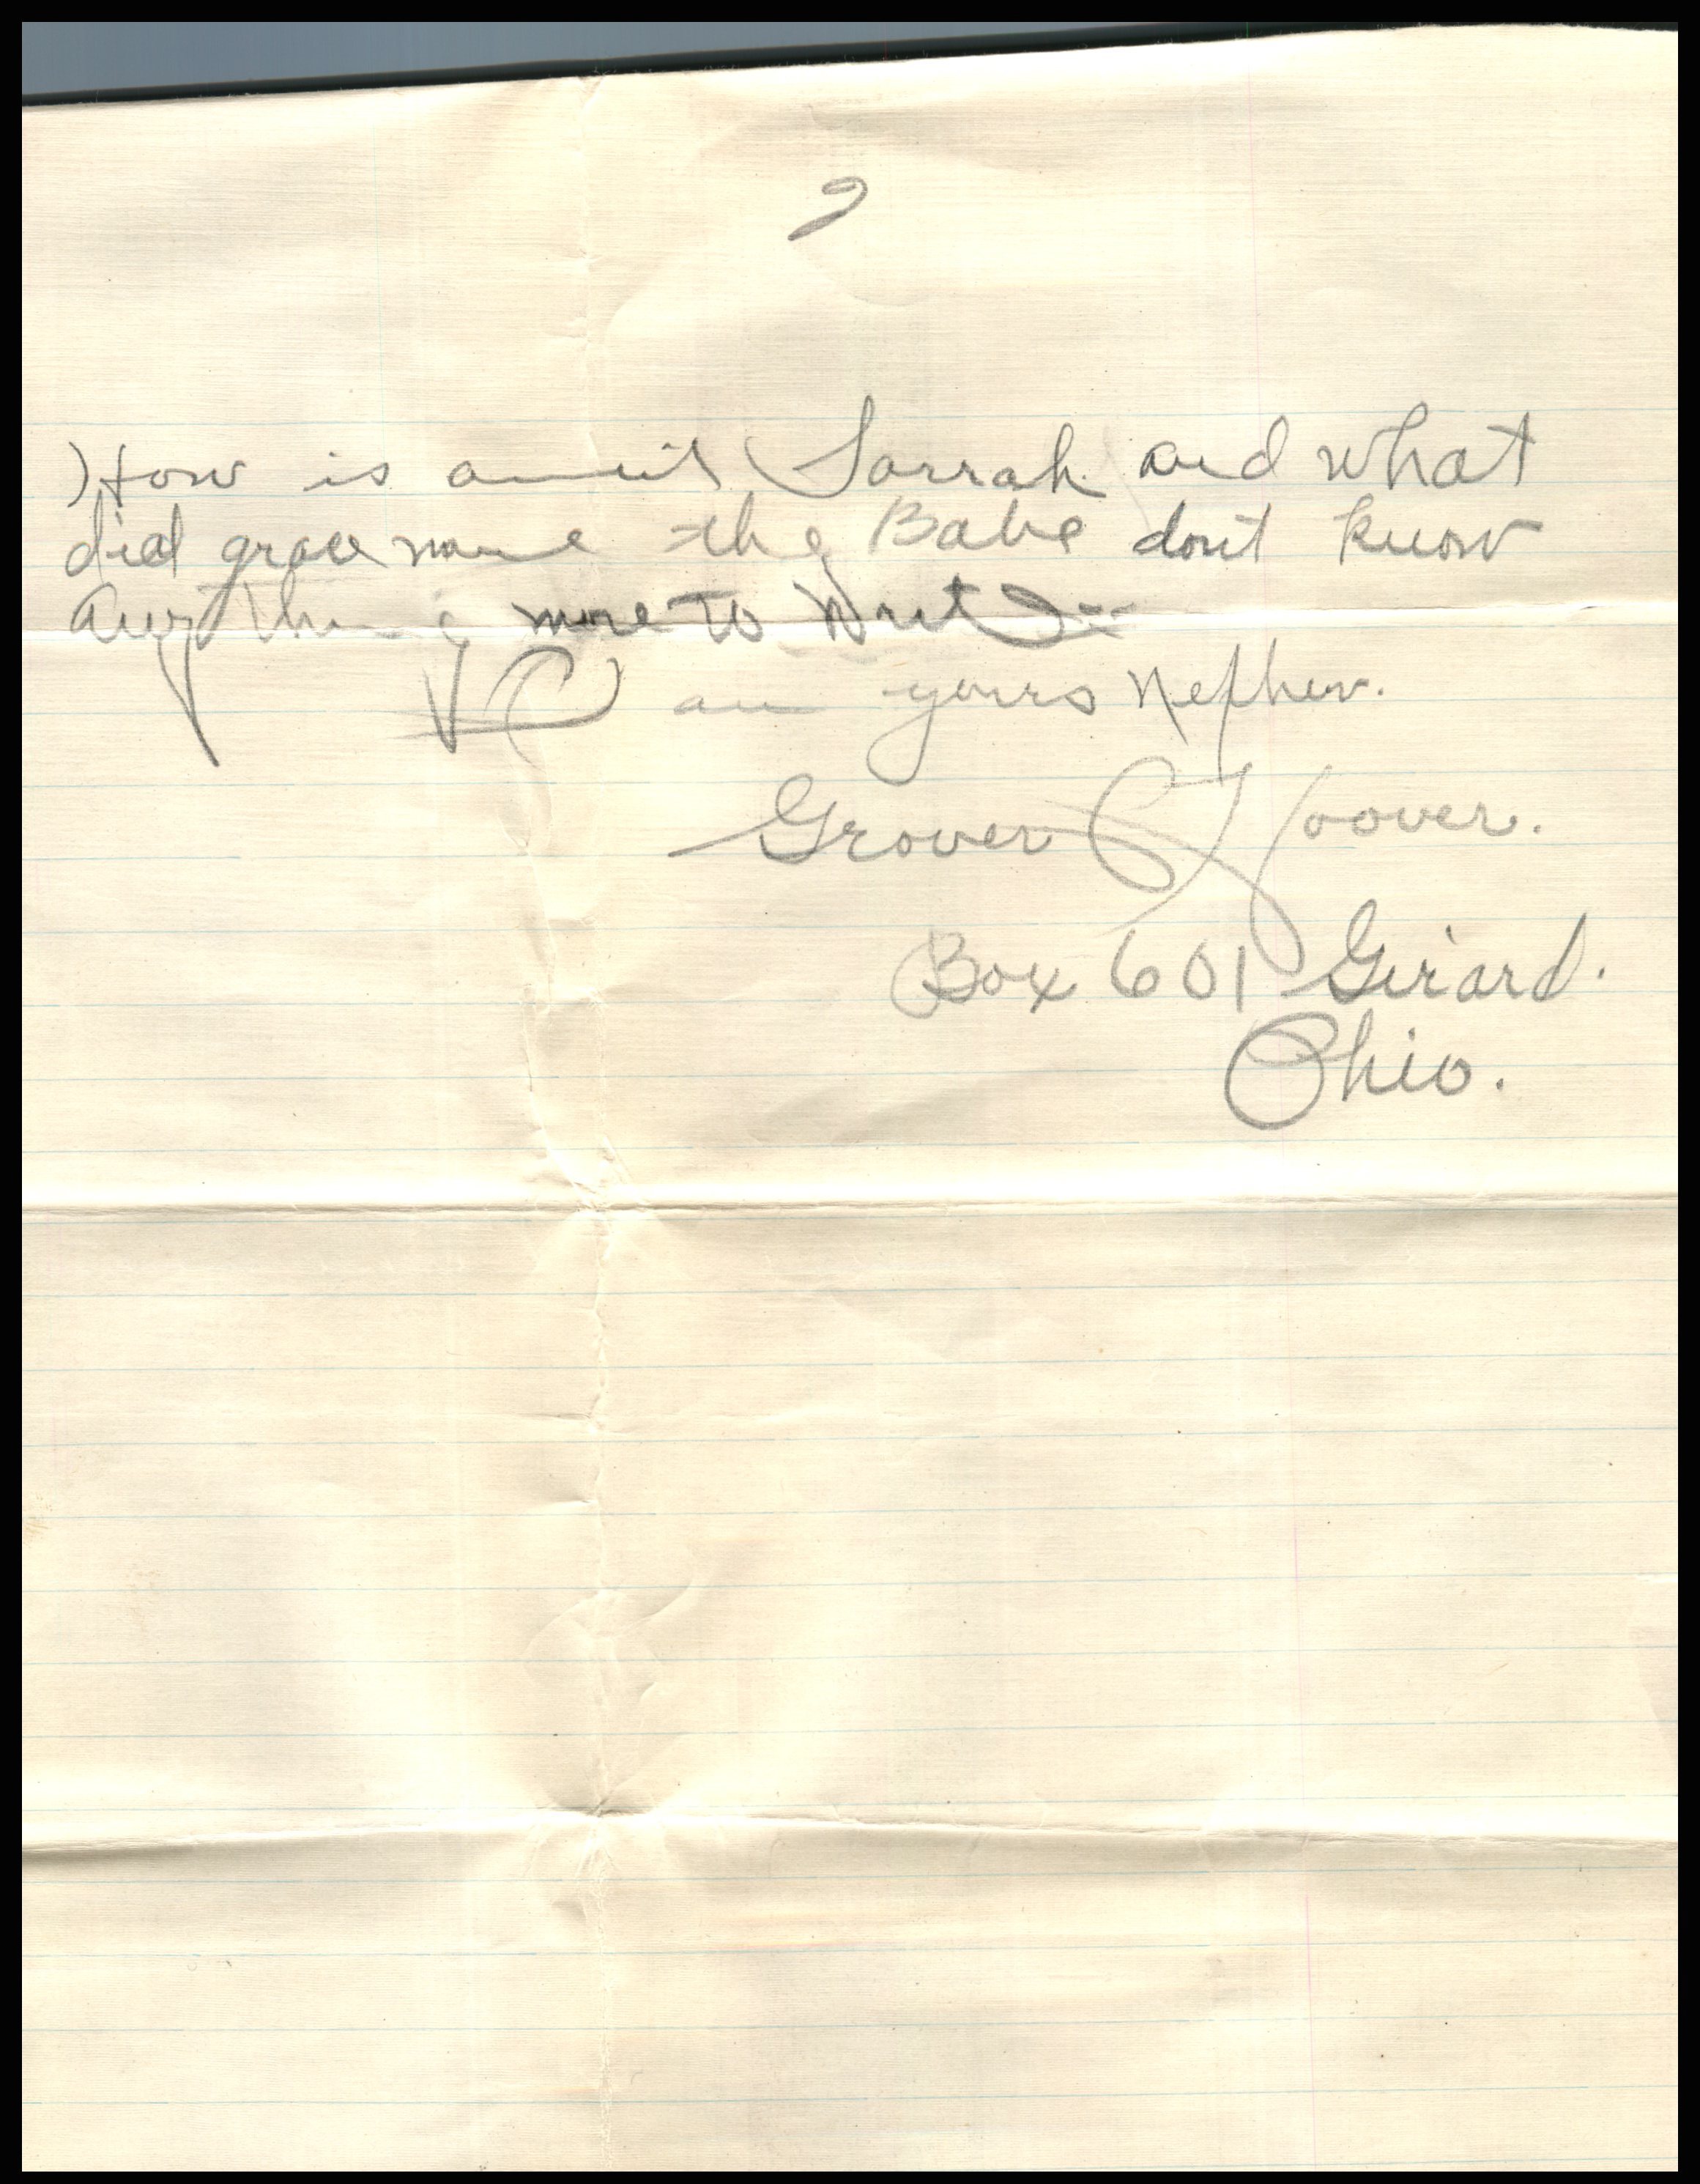 How is aunt Sarrah and what
did grace name the Babe dont know
Any thing more to Write
I am yours Nephew.
Grover C Hoover.
Box 601 Girard.
Ohio.